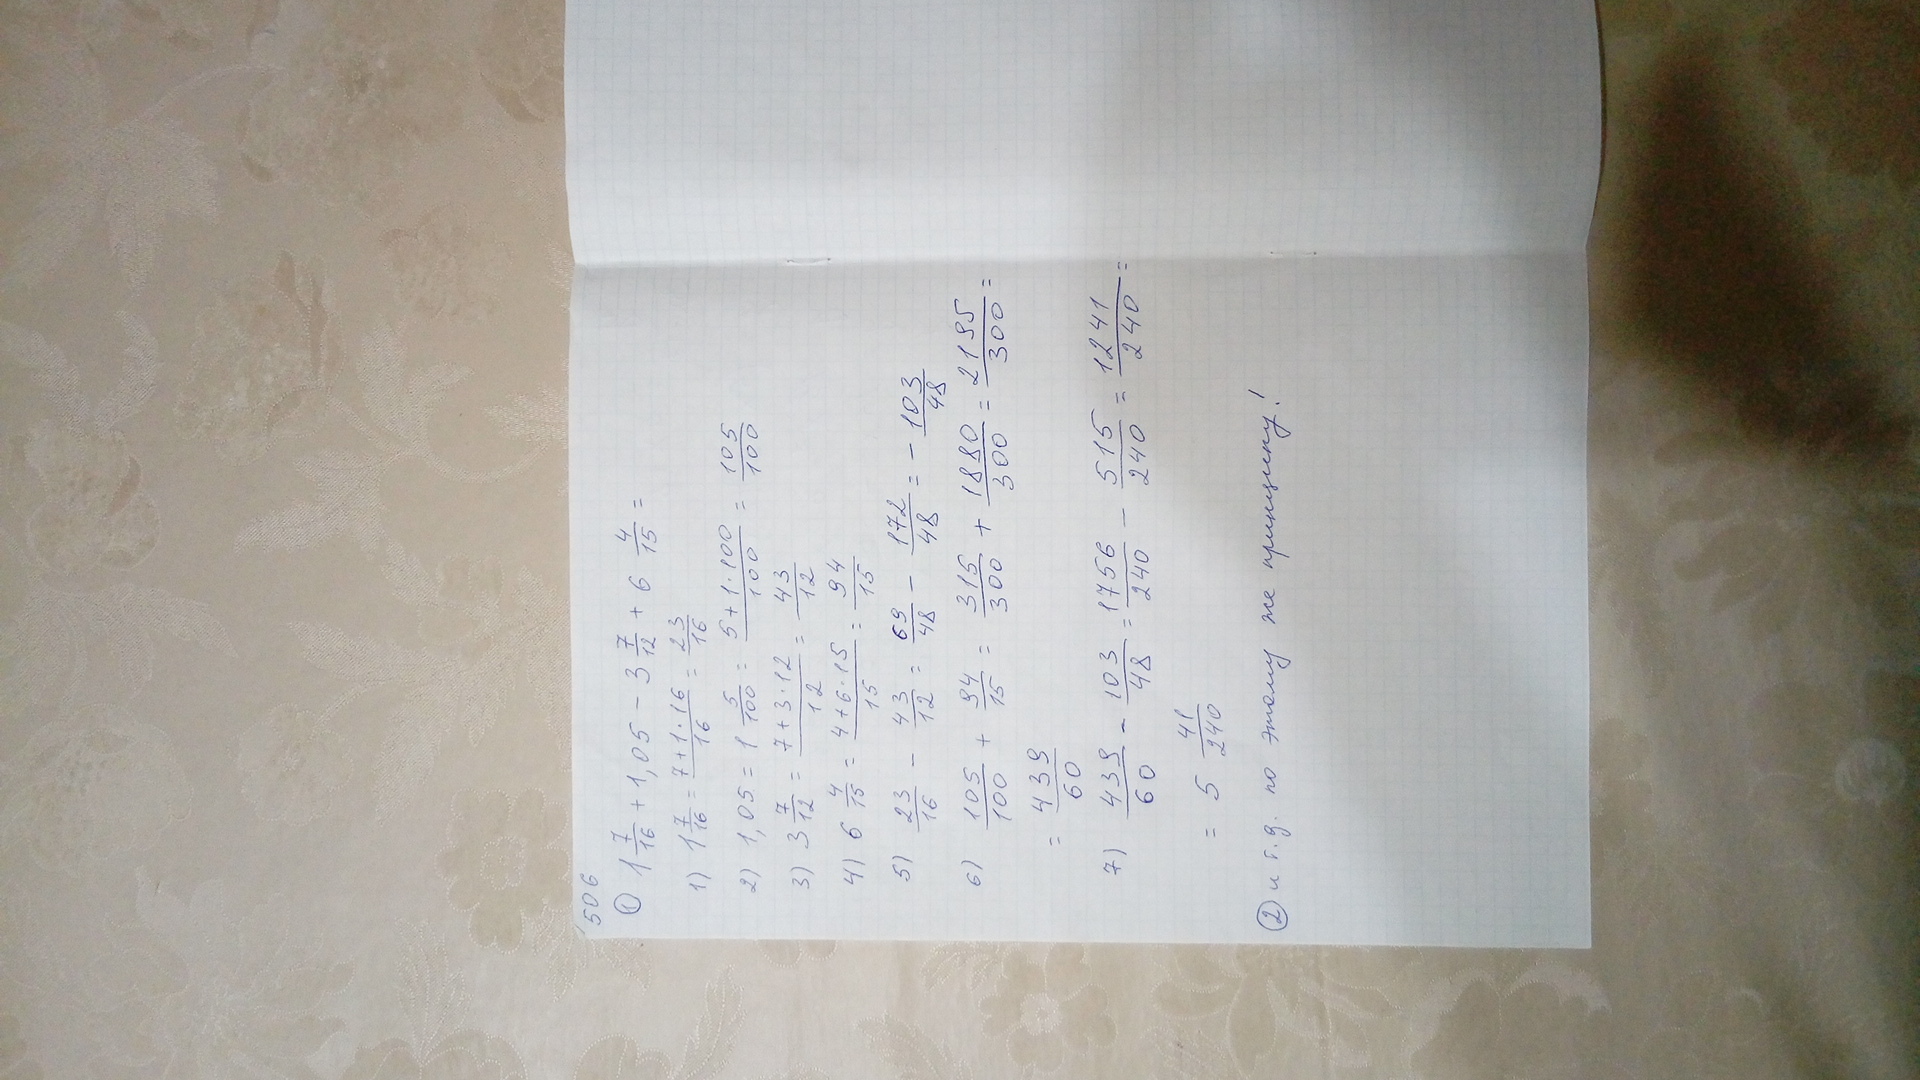 506
① 1 7/16 + 1,05 - 3 7/12 + 6 4/15 =
1) 1 7/16 = 7+1·16/16 = 23/16
2) 1,05 = 1 5/100 = 5+1·100/100 = 105/100
3) 3 7/12 = 7+3·12/12 = 43/12
4) 6 4/15 = 4+6·15/15 = 94/15
5) 23/16 - 43/12 = 69/48 - 172/48 = - 103/48
6) 105/100 + 94/15 = 315/300 + 1880/300 = 2195/300 =
= 439/60
7) 439/60 - 103/48 = 1756/240 - 515/240 = 1241/240 =
= 5 41/240
② и т.д. по этому же принципу!